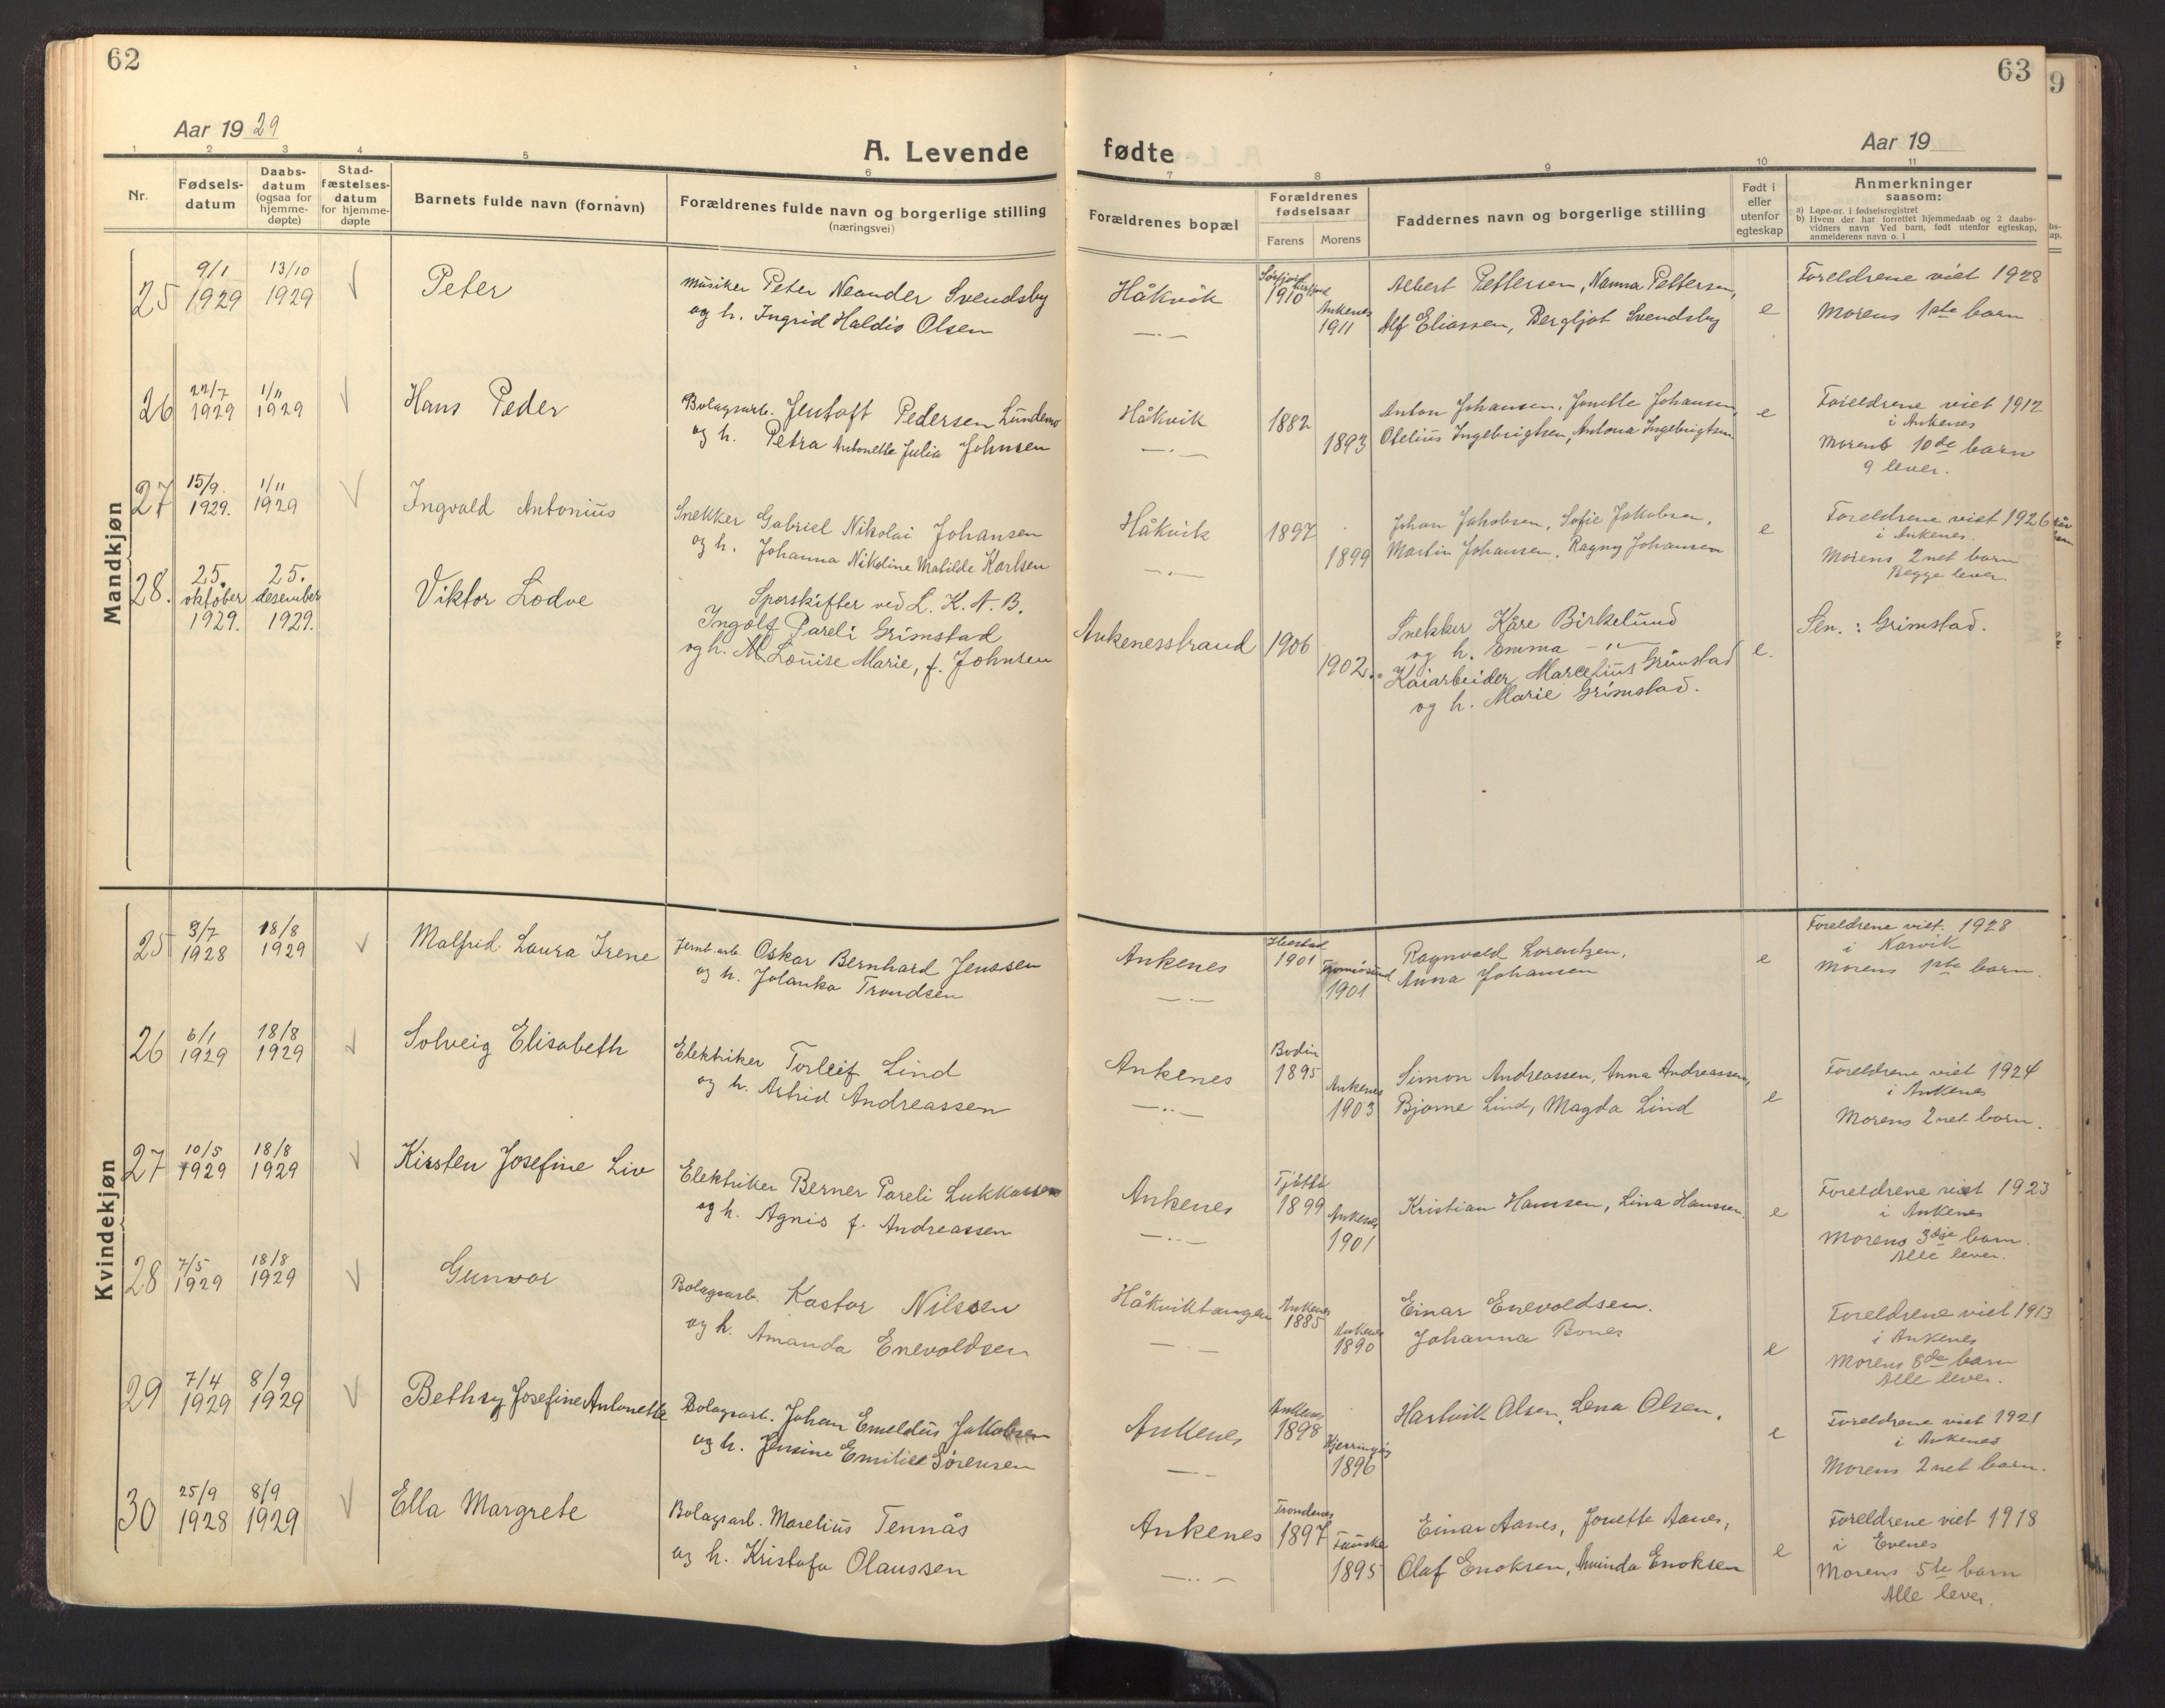 62
Aar 19 29
A. Levende
1 2 3 4 5 6
Nr.
Fødsels-
datum
Daabs-
datum
(ogsaa for
hjemme-
døpte)
Stad-
fæstelses-
datum
for hjemme-
døpte
Barnets fulde navn (fornavn)
Forældrenes fulde navn og borgerlige stilling
(næringsvei)
63
9
fødte
Aar 19
7 8 9 10 11
Forældrenes bopæl
Forældrenes
fødselsaar
Farens Morens
Faddernes navn og borgerlige stilling
Født i
eller
utenfor
egteskap
Anmerkninger
saasom:
a) Løpe-nr. i fødselsregistret
b) Hvem der har forrettet hjemmedaab og 2 daabs-
vidners navn Ved barn, født utenfor egteskap,
anmelderens navn o. l
Mandkjøn
25 9/1 1929 13/10 1929 √ Peter
Musiker Peter Neander Svendsby
og h. Ingrid Haldis Olsen
Håkvik
1910
Ankenes
1911
Albert Pettersen, Nanna Pettersen,
Alf Eliassen, Bergljot Svendsby
e
Foreldrene viet 1928
Morens 1ste barn
26 22/7 1929 1/11 1929 √ Hans Peder
Bolagsarb. Jentoft Pedersen Lundemo
og h. Petra Antonette Julia Johnsen
Håkvik
1882
1893
Anton Johansen, Jonette Johansen,
Otelius Ingebrigtsen, Antona Ingebrigtsen
e
Foreldrene viet 1912
i Ankenes
Morens 10de barn
9 lever.
27 15/9. 1929. 1/11 1929 √ Ingvald Antonius
Snekker Gabriel Nikolai Johansen
og h. Johanna Nikoline Matilde Karlsen
Håkvik
1897
1899
Johan Jakobsen, Sofie Jakobsen,
Martin Johansen, Ragny Johansen
e
Foreldrene viet 1926
i Ankenes.
Morens 2net barn
Begge lever.
28. 25. oktober 1929. 25. desember 1929. Viktor Lodve
Sporskifter ved L. K. A. B.
Ingolf Pareli Grimstad
og h. M. Louise Marie, f. Johnsen
Ankenesstrand
1906
1902.
Snekker Kåre Birkelund
og h. Emma — " —
Kaiarbeider Marcelius Grimstad
og h. Marie Grimstad.
e.
Sen. : Grimstad.
Kvindekjøn
25 3/7 1928 18/8 1929 √ Malfrid Laura Irene
Jernb.arb. Oskar Bernhard Jenssen
og h. Jolanka Trondsen
Ankenes
Ibestad
1901
Tromsøsund
1901
Ragnvald Lorentzen,
Anna Johansen
e
Foreldrene viet. 1928
i Narvik
Morens 1ste barn.
26 6/1 1929 18/8 1929 √ Solveig Elisabeth
Elektriker Torleif Lind
og h. Astrid Andreassen
Ankenes
Bodin
1895
Ankenes
1903
Simon Andreassen, Anna Andreassen,
Bjarne Lind, Magda Lind
e
Foreldrene viet 1924
i Ankenes
Morens 2net barn.
27 10/5 1929 18/8 1929 √ Kirsten Josefine Liv
Elektriker Berner Pareli Lukkassen
og h. Agnis f. Andreassen
Ankenes
Tjøtta
1899
Ankenes
1901
Kristian Hanssen, Lina Hanssen.
e
Foreldrene viet 1923
i Ankenes
Morens 3dje barn.
Alle lever.
28 7/5 1929 18/8 1929 √ Gunvor
Bolagsarb. Kastor Nilssen
og h. Amanda Enevoldsen
Håkviktangen
Ankenes
1885
Ankenes
1890
Einar Enevoldsen.
Johanna Bones
e
Foreldrene viet 1913
i Ankenes
Morens 8de barn
Alle lever.
29 7/4 1929 8/9 1929 √ Bethsy Josefine Antonette
Bolagsarb. Johan Emeldus Jakobsen
og h. Jensine Emilie Sørensen
Ankenes
Ankenes
1898
Kjerringøy
1896
Hartvik Olsen, Lena Olsen.
e
Foreldrene viet 1921
i Ankenes
Morens 2net barn.
30 25/9 1928 8/9 1929 √ Ella Margrete
Bolagsarb. Marelius Tennås
og h. Kristofa Olaussen
Ankenes
Trondenes
1897
Fauske
1895
Einar Aanes, Jonette Aanes,
Olaf Enoksen, Aminda Enoksen
e
Foreldrene viet 1918
i Evenes
Morens 5te barn
Alle lever.